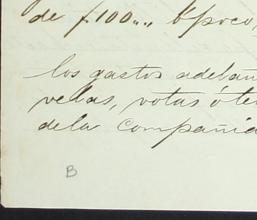 de f.100.., époco,
los gastos adelan
velas, votas ó te
dela compañia
B